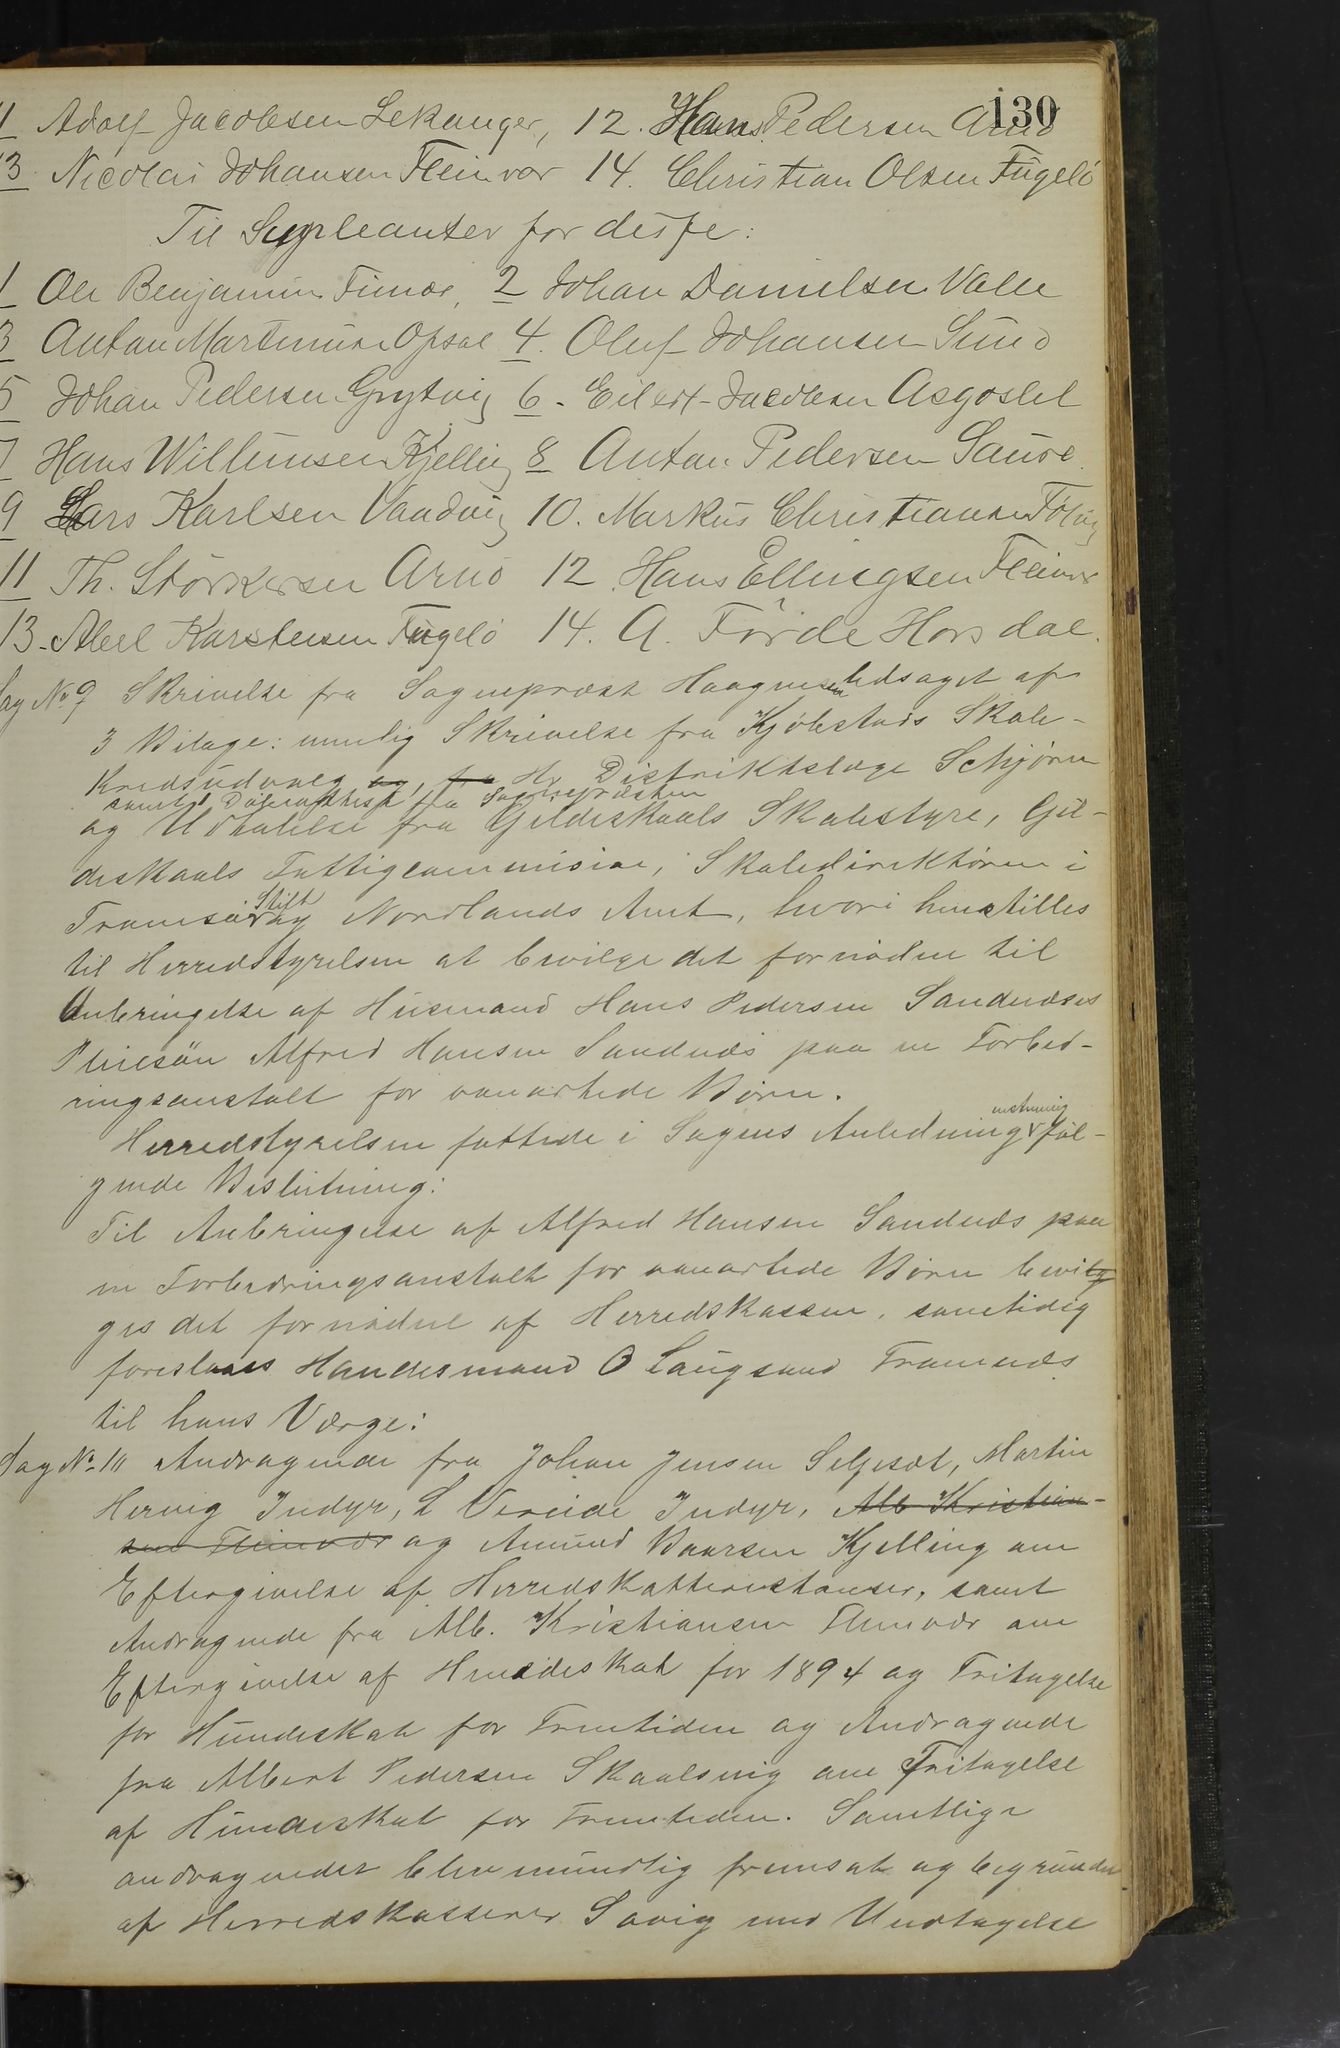 130
11 Adolf Jacobsen Lekanger, 12. Hans Pedersen Arnö
13. Nicolai Johansen Fleinvær 14. Christian Olsen Fugelö
Til Supleanter for disse:
1 Ole Benjamin Finnæs, 2 Johan Danielsen Valle
3 Anton Martinusen Opsal 4. Oluf Johansen Sund
5 Johan Pedersen Grytvig 6. Eilert Jacobsen Aegoslet
7 Hans Willumsen Kjelling 8 Anton Pedersen Saure
9 Lars Karlsen Vaadvig 10. Markus Christiansen Følvig
11 Th. Störkersen Arnö 12 Hans Ellingsen Fleinvær
13. Abel Karstensen Fugelö 14. A. Förde Horsdal.
Sag No 9 Skrivelse fra Sogneprest Haagensen ledsaget af
3 Bilage: nemlig Skrivelse fra Kjöbstads Skole-
kredsudvalg og, fra Hr Distriktslæge Schjörn
samt Døbeattest fra Sognepresten
og Udtalelse fra Gildeskaals Skolestyre, Gil-
deskaals Fattigcommision, Skoledirektören i
Tromsö Stift og Nordlands Amt, hvori henstilles
til Herredstyrelsen at bevilge det fornödne til
Anbringelse af Husmand Hans Pedersen Sandnæses
Pleiesön Alfred Hansen Sandnæs paa en Forbed-
ringsanstalt for vanartede Börn.
Herredstyrelsen fattede i Sagens Anledning enstemmig föl-
gende Beslutning:
Til Anbringelse af Alfred Hansen Sandnæs paa
en Forbedringsanstalt for vanartede Börn bevil-
ges det fornödne af Herredskassen, samtidig
foreslaaes Handelsmand O Langsand Framnæs
til hans Værge:
Sag No 10 Andragende fra Johan Jensen Selsæt, Martin
Hervig Indyr, L Vereide Indyr, Alb Kristian-
sen Fleinvær og Amund Baarsen Kjelling om
Eftergivelse af Herredskatterestanser, samt
Andragende fra Alb. Kristiansen Fleinvær om
Eftergivelse af Hundeskat for 1894 og Fritagelse
for Hundeskat for Fremtiden og Andragende
fra Albert Pedersen Skaalsvig om Fritagelse
af Hundeskat for Fremtiden. Samtlige
andragender blev mundtlig fremsat og begrundet
af Herredskasserer Savig med Undtagelse